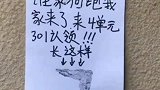 谁家狗跑我
家来了来4单元
301认领!!!
长这样
↓↓↓